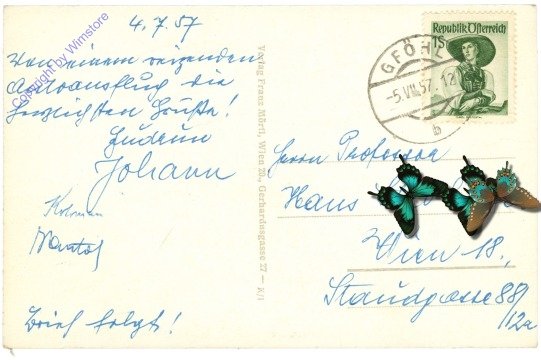 4.7.57
Von einem reizenden
Autoausflug die
herzlichsten Grüße!
Gudrun
Johann
Brief folgt!
Copyright by Wimstore
Verlag Franz Mörtl, Wien 28., Gerhardusgasse 27
Republik Österreich
1S
GFÖHL
-5.VII.57.12
b
Herrn Professor
Hans
Wien 18,
Staudgasse 88/
/12a